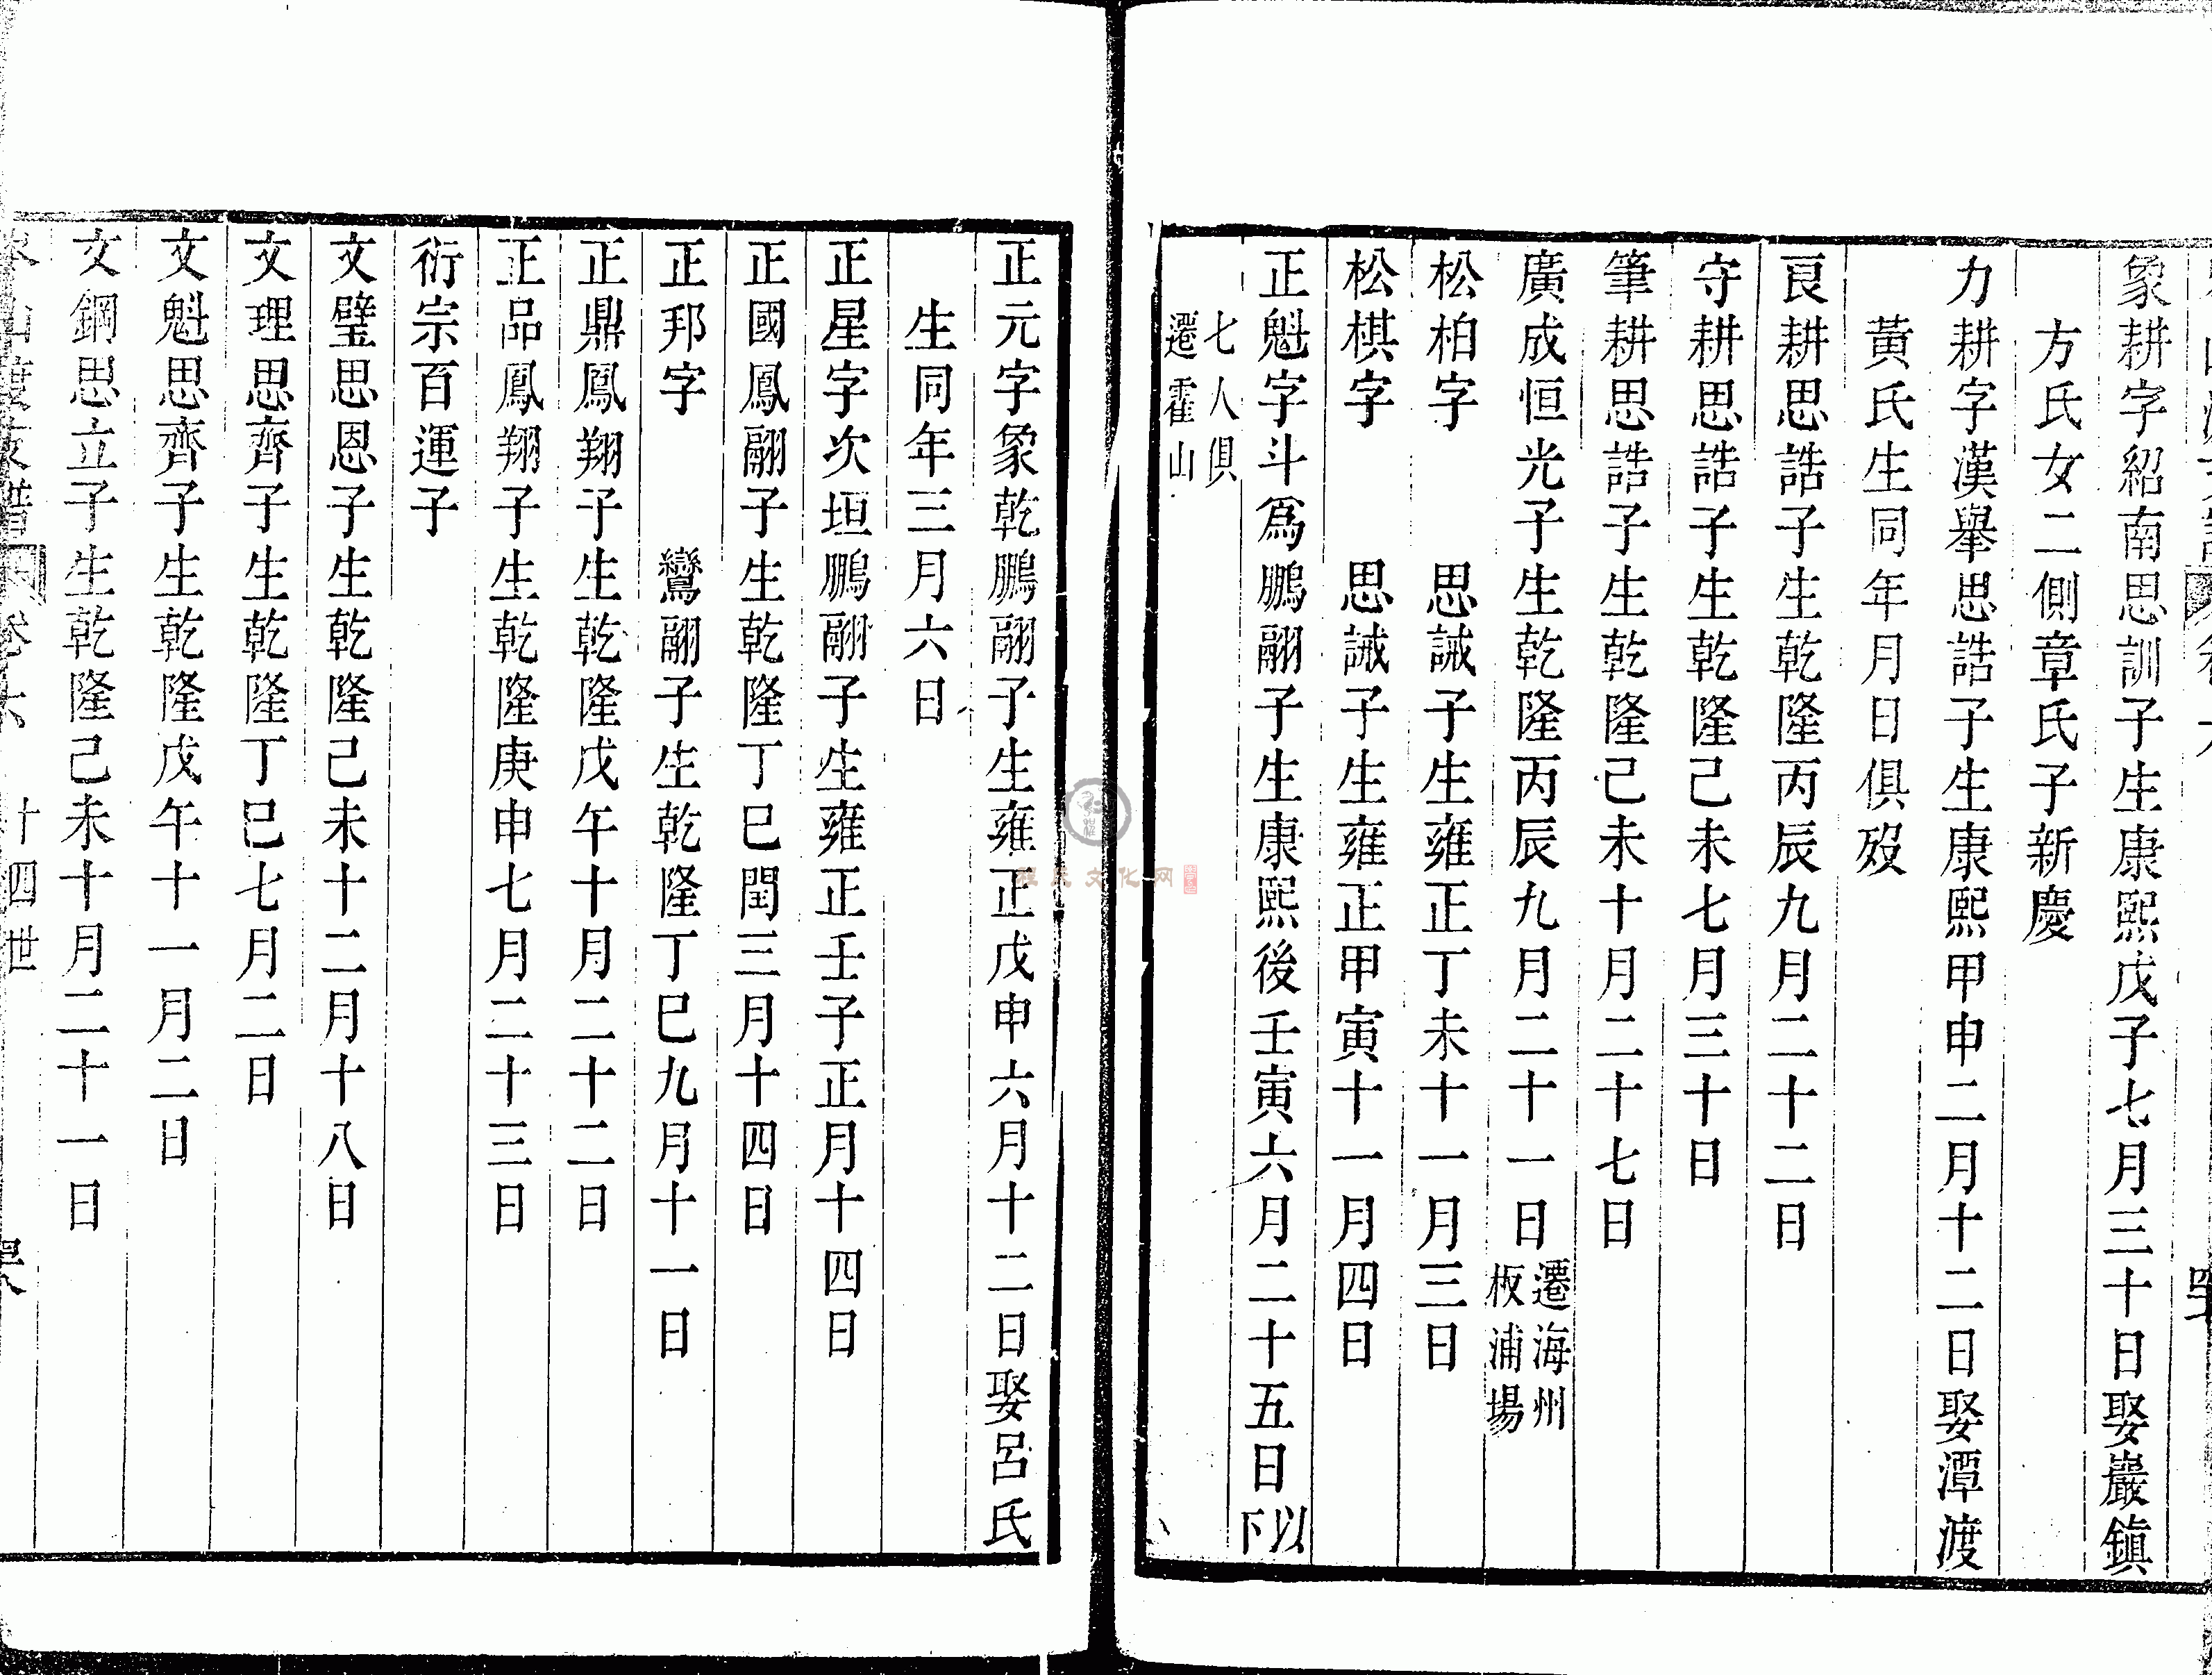 象耕字紹南思訓子生康熙戊子七月三十日娶巖鎮
方氏女二側章氏子新慶
力耕字漢舉思誥子生康熙甲申二月十二日娶潭渡
黃氏生同年月日俱歿
良耕思誥子生乾隆丙辰九月二十二日
守耕思誥子生乾隆己未七月三十日
筆耕思誥子生乾隆己未十月二十七日
廣成恒光子生乾隆丙辰九月二十一日遷海州
板浦場
松柏字 思誠子生雍正丁未十一月三日
松棋字 思誠子生雍正甲寅十一月四日
正魁字斗爲鵬翮子生康熙後壬寅六月二十五日以
下
七人俱
遷霍山
正元字象乾鵬翮子生雍正戊申六月十二日娶呂氏
生同年三月六日
正星字次垣鵬翮子生雍正壬子正月十四日
正國鳳翮子生乾隆丁巳閏三月十四日
正邦字 鸞翮子生乾隆丁巳九月十一日
正鼎鳳翔子生乾隆戊午十月二十二日
正品鳳翔子生乾隆庚申七月二十三日
衍宗百運子
文璧思恩子生乾隆己未十二月十八日
文理思齊子生乾隆丁巳七月二日
文魁思齊子生乾隆戊午十一月二日
文鋼思立子生乾隆己未十月二十一日
卷六 十四世
程氏文化网